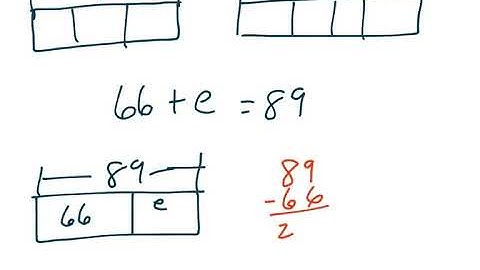 66 + e = 89
89
66 e
89
- 66
2